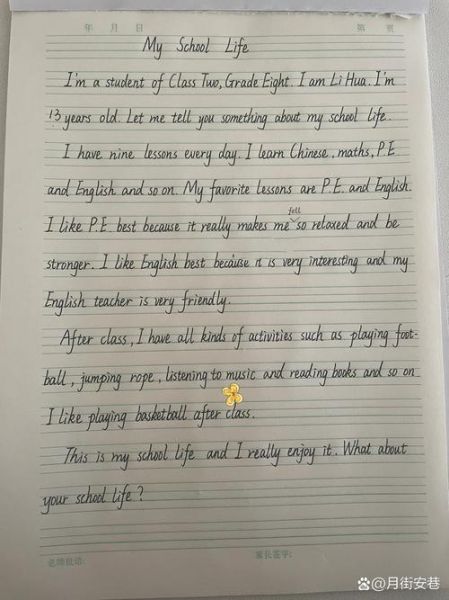 年 月 日 第 页
My School Life
I'm a student of Class Two, Grade Eight. I am Li Hua. I'm
13 years old. Let me tell you something about my school life.
I have nine lessons every day. I learn Chinese, maths, P.E.
and English and so on. My favorite lessons are P.E. and English.
I like P.E. best because it really makes me fell so relaxed and be
stronger. I like English best because it is very interesting and my
English teacher is very friendly.
After class, I have all kinds of activities such as playing foot-
ball, jumping rope, listening to music and reading books and so on
I like playing basketball after class.
This is my school life and I really enjoy it. What about
your school life?
老师批语: 家长签字:
@月街安巷